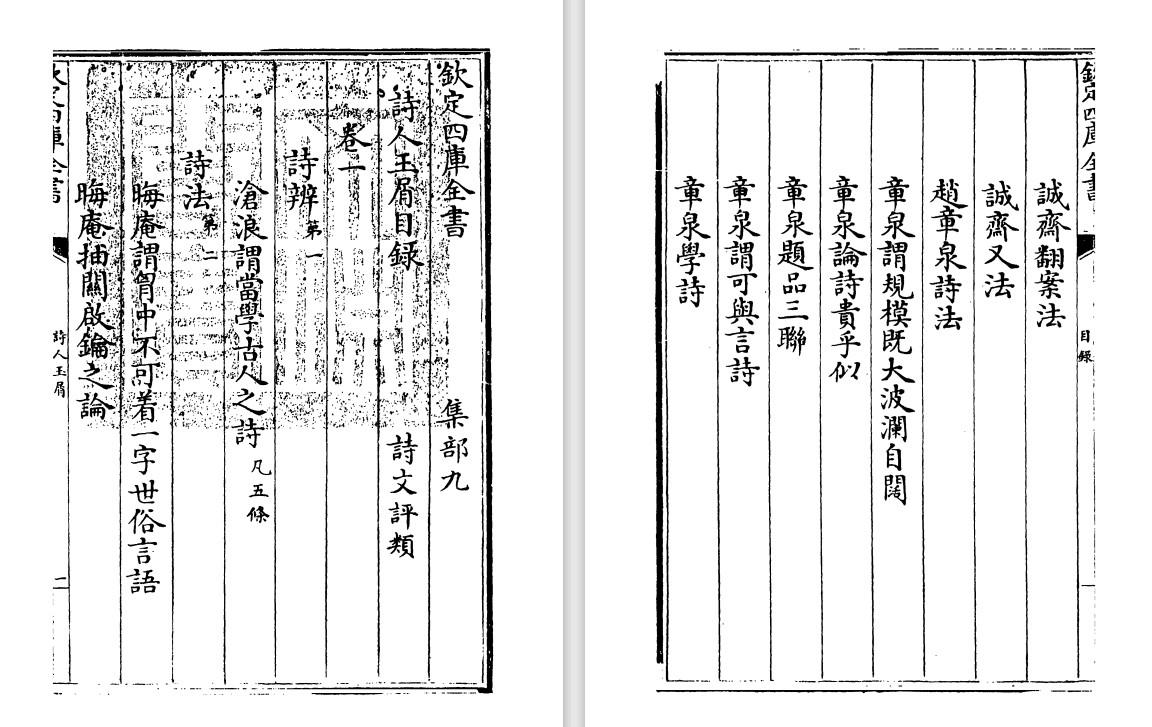 欽定四庫全書 集部九
詩人玉屑目録 詩文評類
卷一
詩辨第一
滄浪謂當學古人之詩凡五條
詩法第二
晦庵謂胷中不可着一字世俗言語
晦庵抽關啟鑰之論
欽定四庫全書 詩人玉屑
欽定四庫全書 目録
誠齋翻案法
誠齋又法
趙章泉詩法
章泉謂規模既大波瀾自闊
章泉論詩貴乎似
章泉題品三聯
章泉謂可與言詩
章泉學詩